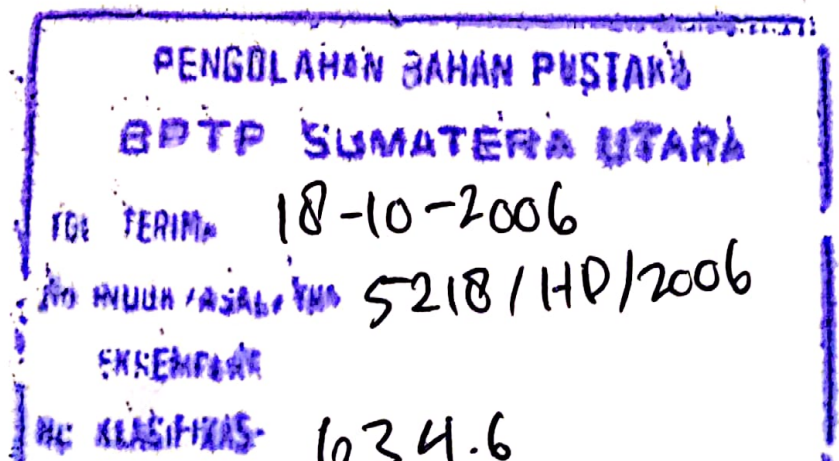 PENGOLAHAN BAHAN PUSTAKA
BPTP SUMATERA UTARA
TGL TERIMA 18-10-2006
NO INDUK /ASAL/ THN 5218/HD/2006
EKSEMPLAR
NO KLASIFIKAS- 634.6